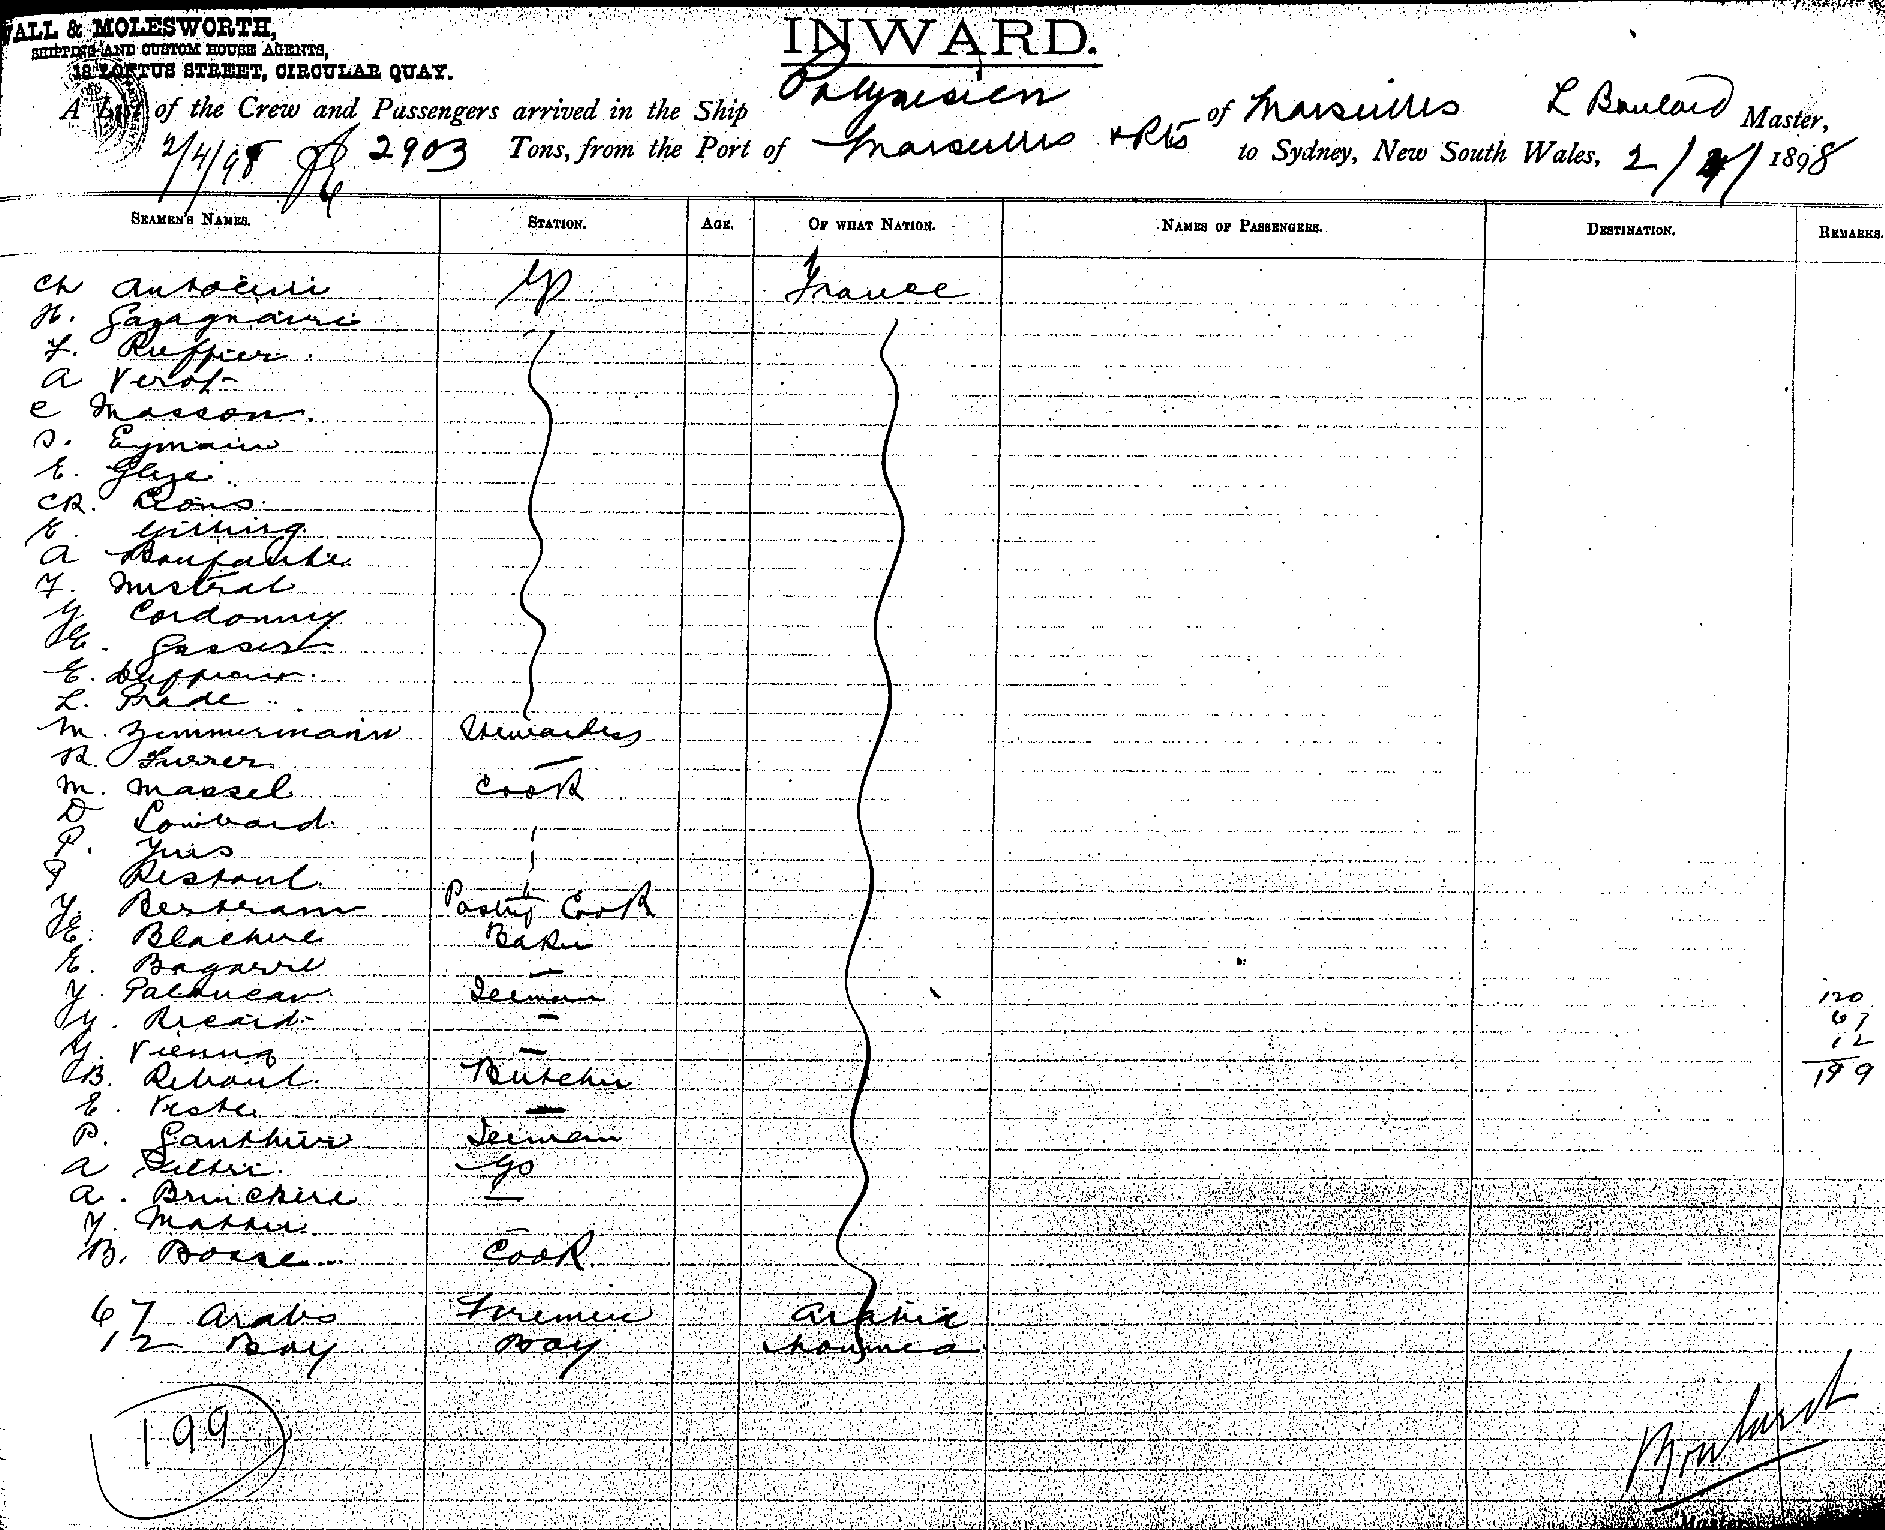 WALL & MOLESWORTH,
SHIPPING AND CUSTOM HOUSE AGENTS,
18 LOFTUS STREET, CIRCULAR QUAY.
INWARD.
A List of the Crew and Passengers arrived in the Ship Polynesien of Marseilles L Boulard Master,
2/4/98 2903 Tons, from the Port of Marseilles & Pts to Sydney, New South Wales, 2/4/1898
SEAMEN'S NAMES. STATION. AGE. OF WHAT NATION. NAMES OF PASSENGERS. DESTINATION. REMARKS.
Ch Antoini France
H. Gazagnaire
F. Ruffier
A Verot
C Masson
S. Eymain
E. Gleze
Ch. Leons
E.
A Bonfante
F. Mistral
Y Cordonny
E. Gasset
E.
L. Prade
M. Zimmermann Stewardess
R. Furrer —
M. Massel Cook
D Lombard
P.
P Restoul
Y. Bertram Pastry Cook
E. Blachere Baker
E. Bagarre —
Y. 120
Y. Ricard — 67
Y. Vienna — 12
B. Reboul Butcher 199
E. —
P. Gauthier
A
A. —
Y. Mathieu
B. Bosse Cook
67 Arabs Firemen Arabia
12 Boy Boy Noumea
199
Boulard